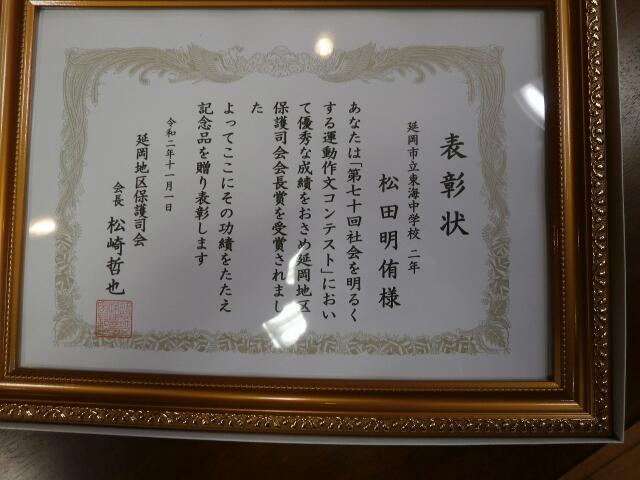 表彰状
延岡市立東海中学校 二年
松田明侑様
あなたは「第七十回社会を明るく
する運動作文コンテスト」におい
て優秀な成績をおさめ延岡地区
保護司会会長賞を受賞されまし
た
よってここにその功績をたたえ
記念品を贈り表彰します
令和二年十一月一日
延岡地区保護司会
会長 松崎哲也